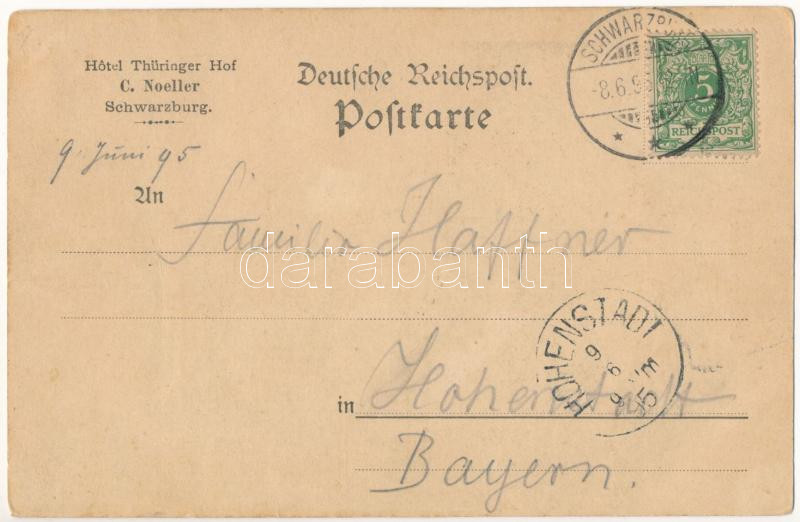 Hôtel Thüringer Hof
C. Noeller
Schwarzburg.
Deutsche Reichspost.
Postkarte
9. Juni 95
An
Familie Haffner
in Hohenstadt
Bayern.
SCHWARZBU
-8.6.9
5
REICHSPOST
HOHENSTADT
9
6
95
darabanth